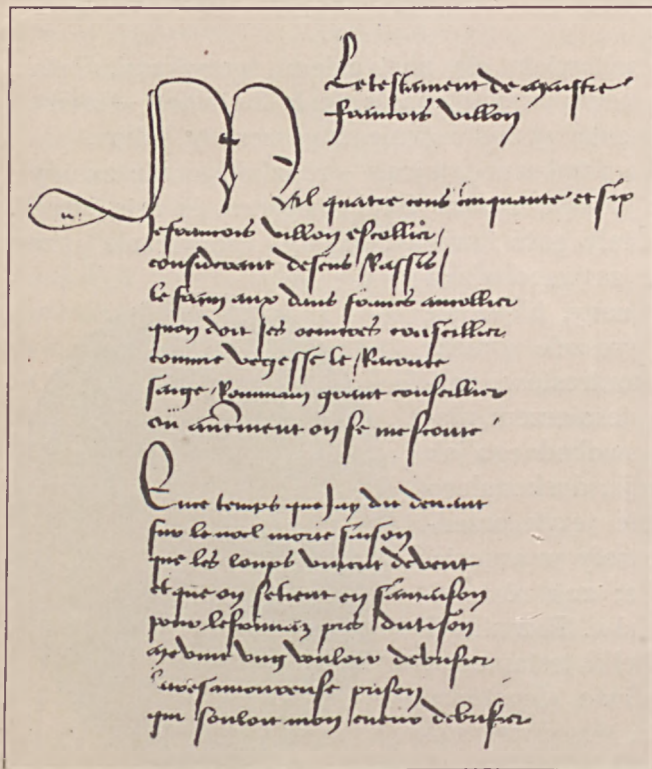 Le testament de maistre
francois villon
Mil quatre cens cinquante et six
Je francois villon escollier
considerant de sens Rassis
le frain aux dans francs au collier
quon doit ses oeuvres conseillier
comme vegesse le Raconte
saige Rommain grant conseillier
ou autrement on se mesconte
En ce temps que Jay dit devant
sur le noel morte saison
que les loups vivent de vent
et que on se tient en sa maison
pour le frimaz pres du tison
me vint ung vouloir de brisier
la tres amoureuse prison
qui souloit mon cueur debrisier